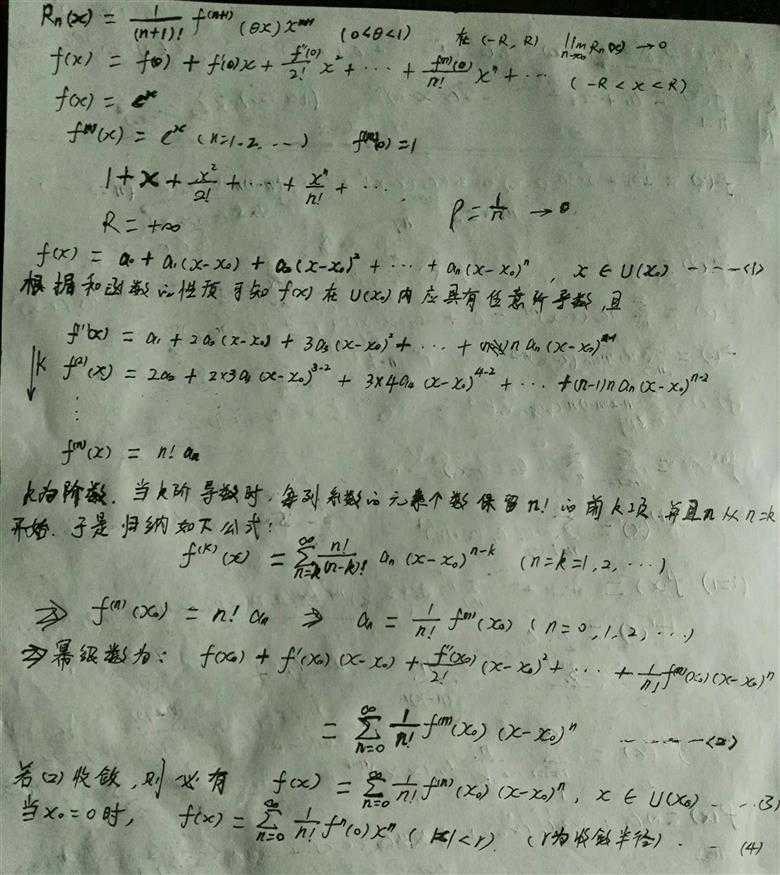 Rn(x) = 1/(n+1)! f^(n+1) (θx) x^(n+1) (0<θ<1) 在 (-R, R) lim Rn(x) → 0
f(x) = f(0) + f'(0)x + f''(0)/2! x² + ⋯ + f^(n)(0)/n! x^n + ⋯ (-R < x < R)
f(x) = e^x
f^(n)(x) = e^x (n=1.2, ⋯) f^(n)(0) = 1
1 + x + x²/2! + ⋯ + x^n/n! + ⋯
R = +∞ ρ = 1/n → 0
f(x) = a₀ + a₁(x-x₀) + a₂(x-x₀)² + ⋯ + aₙ(x-x₀)^n , x ∈ U(x₀) ----<1>
根据和函数的性质可知 f(x) 在 U(x₀) 内应具有任意阶导数,且
f'(x) = a₁ + 2a₂(x-x₀) + 3a₃(x-x₀)² + ⋯ + n aₙ(x-x₀)^(n-1)
↓k f^(2)(x) = 2a₂ + 2×3a₃(x-x₀)^(3-2) + 3×4a₄(x-x₀)^(4-2) + ⋯ + (n-1)n aₙ(x-x₀)^(n-2)
⋮
f^(n)(x) = n! aₙ
k为阶数. 当k阶导数时, 每列系数的元素个数保留n!的前k项, 并且n从n=k
开始. 于是归纳如下公式:
f^(k)(x) = ∑_{n=k}^∞ n!/(n-k)! aₙ (x-x₀)^(n-k) (n=k=1,2, ⋯)
⇒ f^(n)(x₀) = n! aₙ ⇒ aₙ = 1/n! f^(n)(x₀) (n=0,1,2, ⋯)
⇒ 幂级数为: f(x₀) + f'(x₀)(x-x₀) + f''(x₀)/2! (x-x₀)² + ⋯ + 1/n! f^(n)(x₀)(x-x₀)^n
= ∑_{n=0}^∞ 1/n! f^(n)(x₀) (x-x₀)^n -----<2>
若(2)收敛, 则必有 f(x) = ∑_{n=0}^∞ 1/n! f^(n)(x₀) (x-x₀)^n, x ∈ U(x₀) ---(3)
当x₀=0时, f(x) = ∑_{n=0}^∞ 1/n! f^n(0) x^n (|x|<r) (r为收敛半径). -- (4)